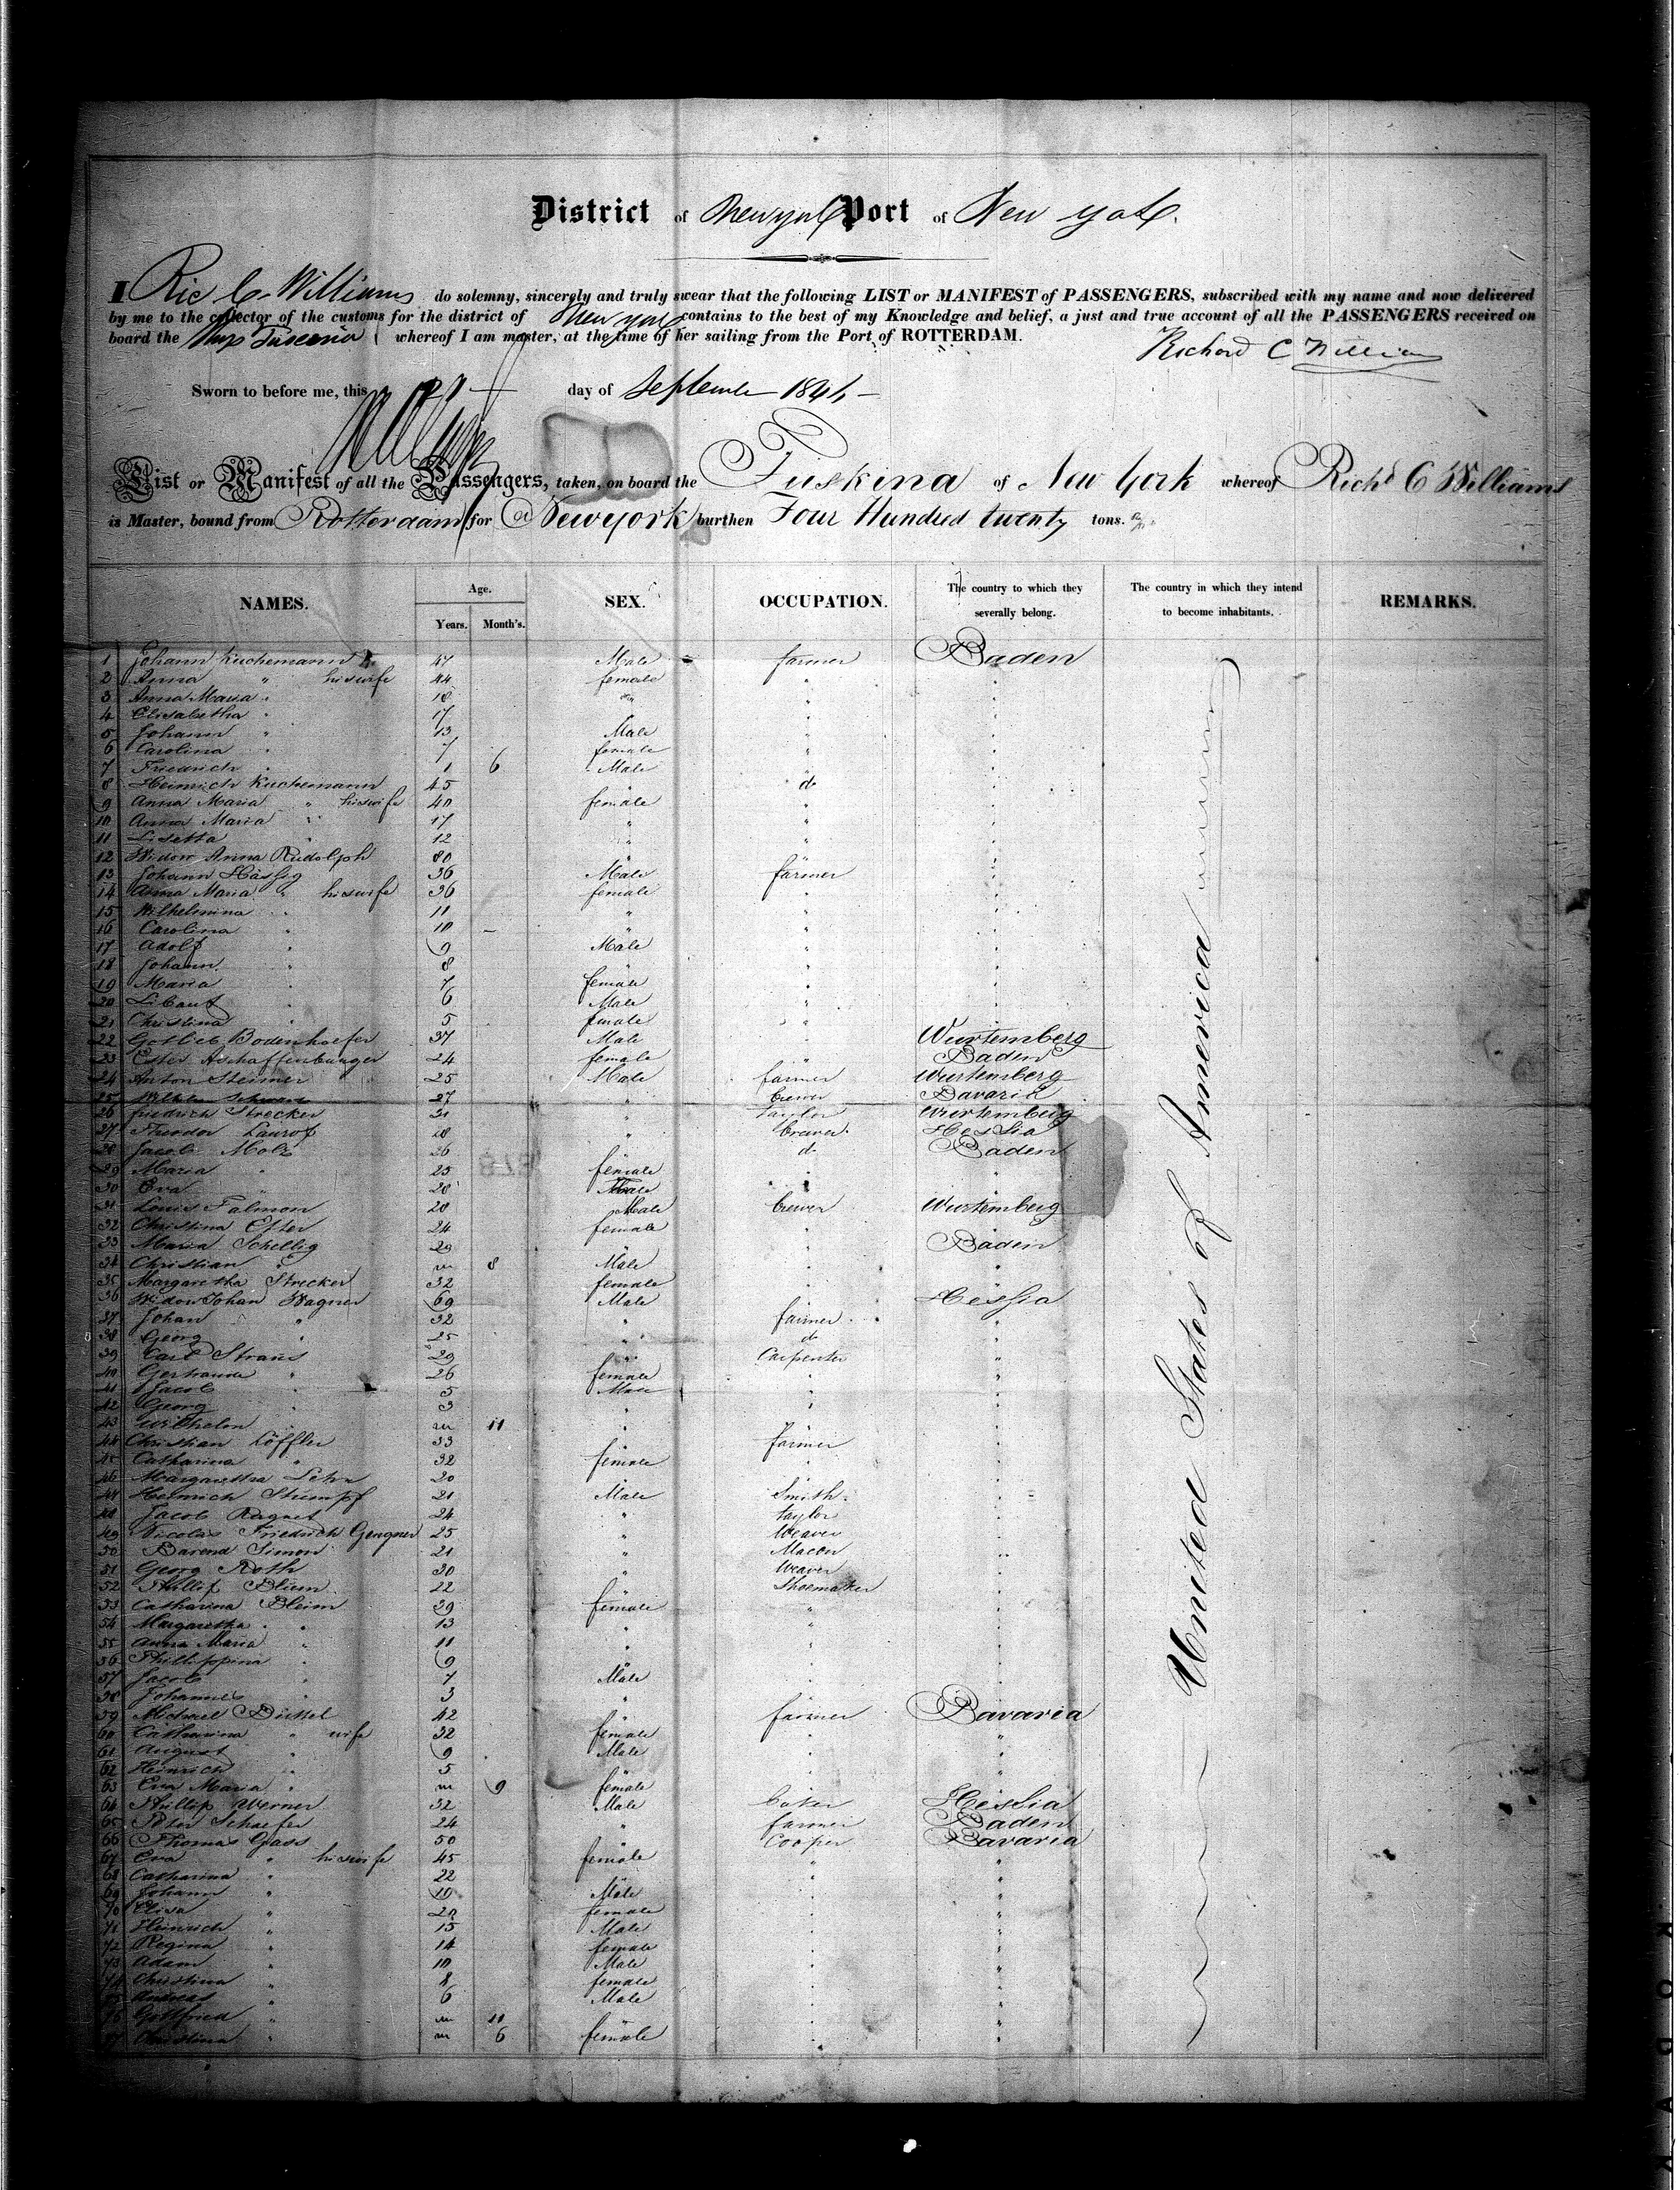 District of New york Port of New york.
I Ric C. Williams do solemny, sincerely and truly swear that the following LIST or MANIFEST of PASSENGERS, subscribed with my name and now delivered
by me to the collector of the customs for the district of New york contains to the best of my Knowledge and belief, a just and true account of all the PASSENGERS received on
board the Ship whereof I am master, at the time of her sailing from the Port of ROTTERDAM.
Richard C Williams
Sworn to before me, this 27 day of September 184
List or Manifest of all the Passengers, taken, on board the Tuskina of New York whereof Richd C Williams
is Master, bound from Rotterdam for Newyork burthen Four Hundred twenty tons.
NAMES. Age. SEX. OCCUPATION. The country to which they severally belong. The country in which they intend to become inhabitants. REMARKS.
Years. Month's.
United States of America
1 Johann Kuchemann 47 Male farmer Baden
2 Anna " his wife 44 female "
3 Anna Maria " 18 "
4 Elisabetha " 17 "
5 Johann " 13 Male "
6 Carolina " 7 female "
7 Friedrich " 1 6 Male "
8 Heinrich Kuchemann 45 do "
9 Anna Maria " his wife 40 female "
10 Anna Maria " 17 " "
11 Lisetta " 12 " "
12 Widow Anna Rudolph 80 "
13 Johann Hässig 36 Male farmer "
14 Anna Maria " his wife 36 female "
15 Wilhelmina " 11 " "
16 Carolina " 10 " "
17 Adolf " 9 Male "
18 Johann " 8 " "
19 Maria " 7 female "
20 Libaut " 6 Male "
21 Christina " 5 female "
22 Gotlieb Bodenhoefer 37 Male " Wurtemberg
23 Ester Aschaffenburger 24 female " Baden
24 Anton Steimer 25 Male farmer Wurtemberg
25 Wilhelm 27 " brewer Bavaria
26 friedrich Strecker 31 " Taylor Wurtemberg
27 Theodor Laurof 28 " brewer Hessia
28 Jacob Molz 26 " do Baden
29 Maria " 25 female "
30 Eva " 20 "
31 Louis Falmon 28 Male brewer Wurtemberg
32 Christina Etter 24 female "
33 Maria Schellig 29 " Baden
34 Christian " m 8 Male "
35 Margaretha Strecker 32 female "
36 Widow Johan Wagner 69 Male Hessia
37 Johan " 32 " farmer "
38 Georg " 25 " do "
39 Carl Straus 29 " Carpenter "
40 Gertraude " 26 female "
41 Jacob " 5 Male "
42 Georg " 3 " "
43 Wilhelm " m 11 " "
44 Christian Löffler 33 farmer "
45 Catharina " 32 female "
46 Margaretha 20 "
47 Heinrich Stumpf 21 Male Smith "
48 Jacob Ragnet 24 " taylor "
49 Nicolas Friedrich Gengner 25 " Weaver "
50 Barend Simon 21 " Macon "
51 Georg Roth 30 " Weaver "
52 Phillip Blum 22 Shoemaker "
53 Catharina Bleim 39 female " "
54 Margaretha " 13 " "
55 Anna Maria " 11 " "
56 Phillippina " 9 " "
57 Jacob " 7 Male "
58 Johannes " 3 " "
59 Michael Dickel 42 " farmer Bavaria
60 Catharina " wife 32 female "
61 August " 9 Male "
62 Heinrich " 5 " "
63 Eva Maria " m 9 female "
64 Phillip Werner 32 Male baker Hessia
65 Peter Schaefer 24 " farmer Baden
66 Thomas Gass 50 Cooper Bavaria
67 Eva " his wife 45 female " "
68 Catharina " 22 " "
69 Johann " 19 Male "
70 Elisa " 20 female "
71 Heinrich " 15 Male "
72 Regina " 14 female "
73 Adam " 10 Male "
74 Christina " 8 female "
75 Andreas " 6 Male "
76 Gottfried " m 11 "
77 Christina " m 6 female "